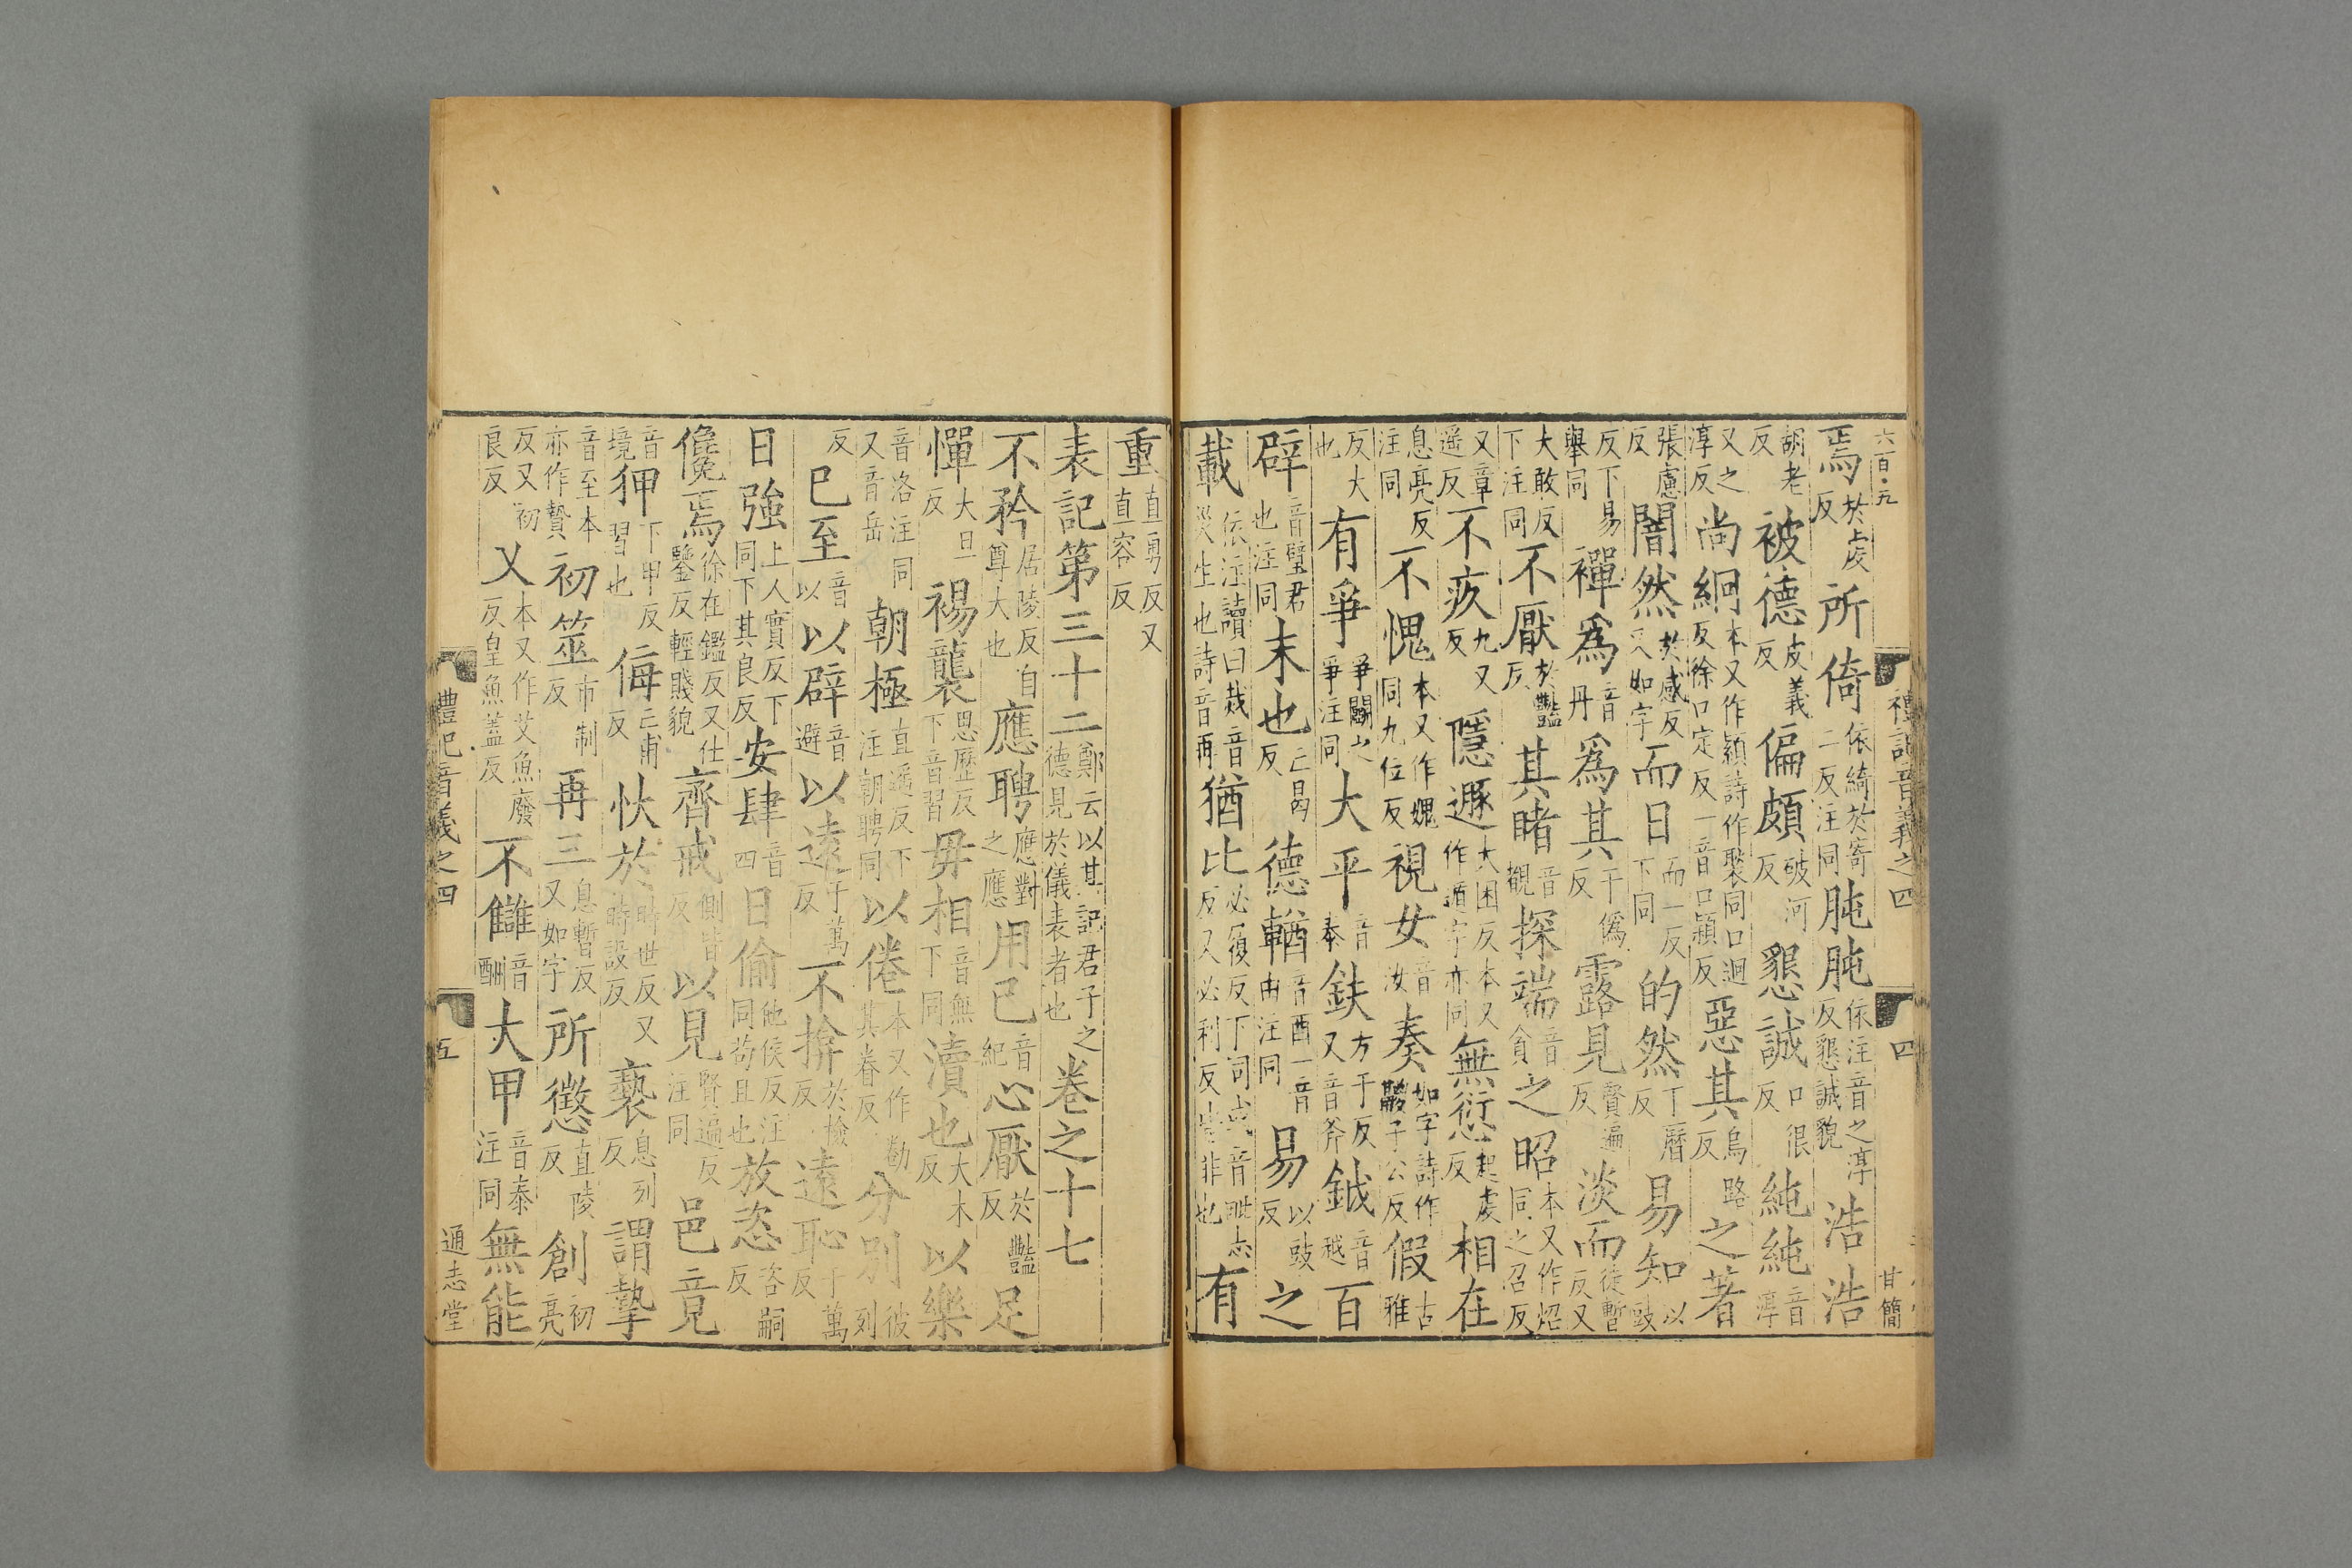 六百九
焉於虔反所倚依綺於寄二反注同肫肫依注音之淳反懇誠貌浩浩
胡老反被德皮義反偏頗破河反懇誠口很反純純音淳
又之淳反尚絅本又作潁詩作褧同口迥反徐口定反一音口潁反惡其烏路反之著
張慮反闇然於感反又如字而日而一反下同的然丁歷反易知以豉
反下易舉同襌爲音丹爲其于僞反露見賢遍反淡而徒暫反又
大敢反下注同不厭於豔反其睹音觀探端音貪之昭本又作炤同之召反
又章遥反不疚九又反隱遯大困反本又作遁字亦同無愆起虔反相在
息亮反注同不愧本又作媿同九位反視女音汝奏如字詩作鬷子公反假古雅
反大也有爭爭鬭之爭注同大平音泰鈇方于反又音斧鉞音越百
辟音璧君也注同末也亡曷反德輶音酉一音由注同易以豉反之
載依注讀曰栽音災生也詩音再猶比必履反下同或音毗志反又必利反皆非也有
禮記音義之四
四
甘簡
重直勇反又直容反
表記第三十二鄭云以其記君子之德見於儀表者也卷之十七
不矜居陵反自尊大也應聘應對之應用己音紀心厭於豔反足
憚大旦反裼襲思歷反下音習毋相音無下同瀆也大木反以樂
音洛注同又音岳朝極直遥反下注朝聘同以倦本又作勌其眷反分別彼列
反已至音以以辟音避以遠于萬反不揜於檢反遠恥于萬反
日強上人實反下同下其良反安肆音四日偷他侯反注同苟且也放恣咨嗣反
儳焉徐在鑑反又仕鑒反輕賤貌齊戒側皆反以見賢遍反注同邑竟
音境狎下甲反習也侮亡甫反忕於時世反又時設反褻息列反謂摯
音至本亦作贄初筮市制反再三息暫反又如字所懲直陵反創初亮
反又初良反乂本又作艾魚廢反皇魚蓋反不讎音酬大甲音泰注同無能
禮記音義之四
五
通志堂